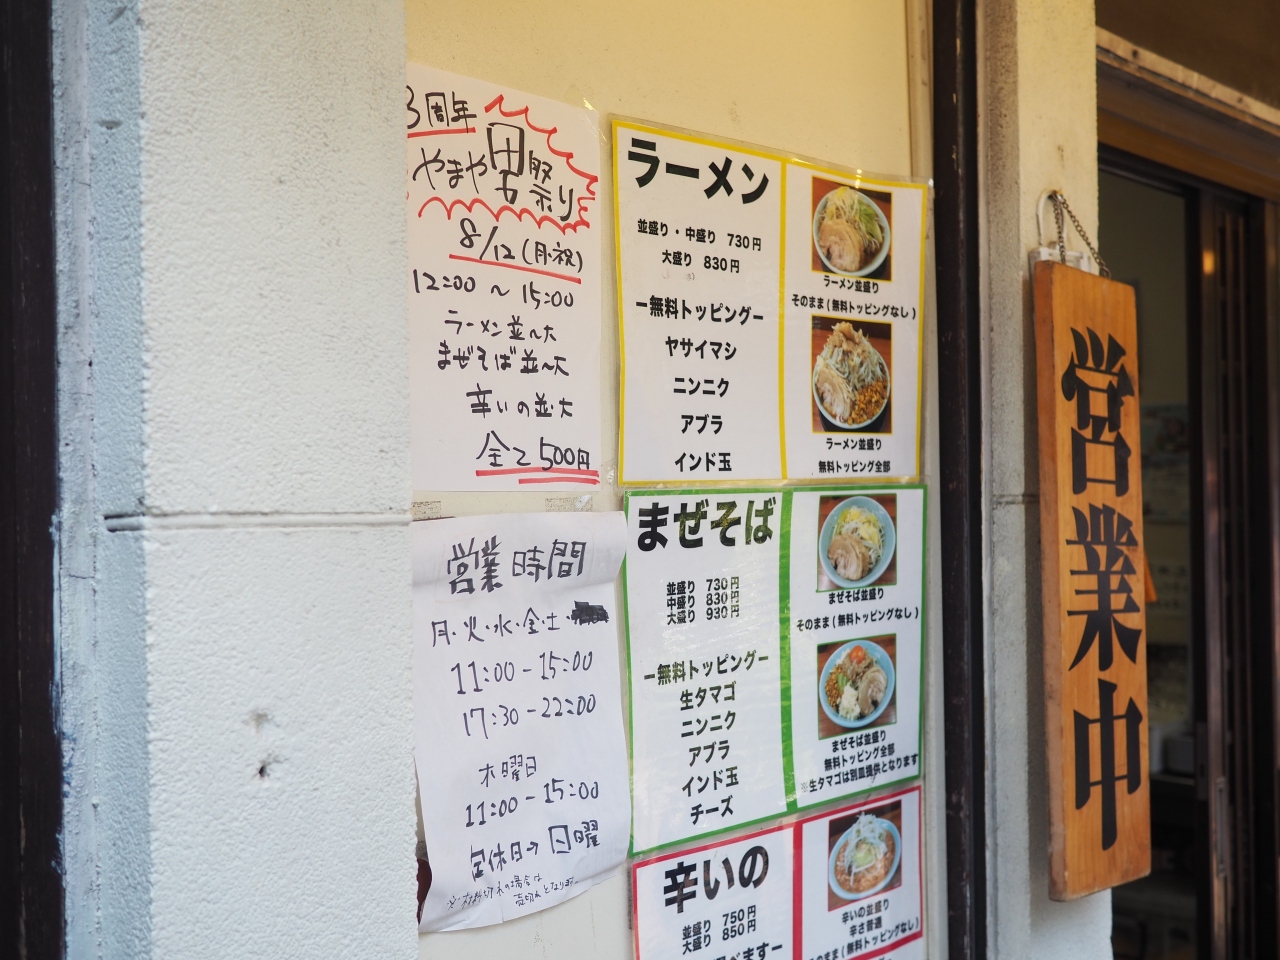 3周年
やまや
祭り
8/12(月・祝)
12:00 ～ 15:00
ラーメン並〜大
まぜそば並〜大
辛いの並・大
全て500円
営業時間
月・火・水・金・土・
11:00-15:00
17:30-22:00
木曜日
11:00-15:00
定休日→日曜
※材料切れの場合は
売切れとなります
ラーメン
並盛り・中盛り 730円
大盛り 830円
ー無料トッピングー
ヤサイマシ
ニンニク
アブラ
インド玉
ラーメン並盛り
そのまま(無料トッピングなし)
ラーメン並盛り
無料トッピング全部
まぜそば
並盛り 730円
中盛り 830円
大盛り 930円
ー無料トッピングー
生タマゴ
ニンニク
アブラ
インド玉
チーズ
まぜそば並盛り
そのまま(無料トッピングなし)
まぜそば並盛り
無料トッピング全部
※生タマゴは別皿提供となります
辛いの
並盛り 750円
大盛り 850円
べますー
辛いの並盛り
辛さ普通
そのまま(無料トッピングなし)
営業中